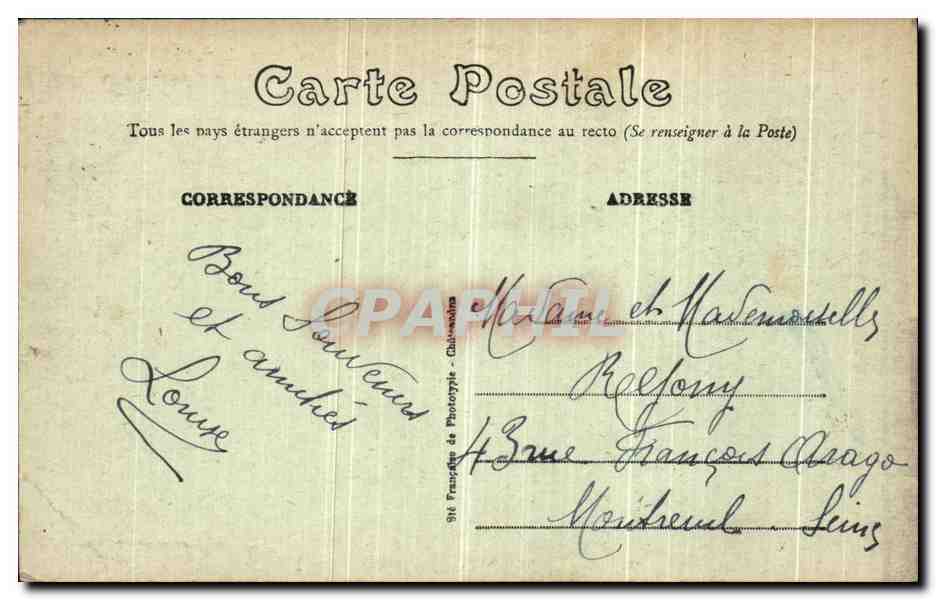 Carte Postale
Tous les pays étrangers n'acceptent pas la correspondance au recto (Se renseigner à la Poste)
CORRESPONDANCE
ADRESSE
Bons Souvenirs
et amitiés
Louise
CPAPHIL
Sté Française de Phototypie - Châteaudun
Madame et Mademoiselle
43 rue François Arago
Montreuil. Seine